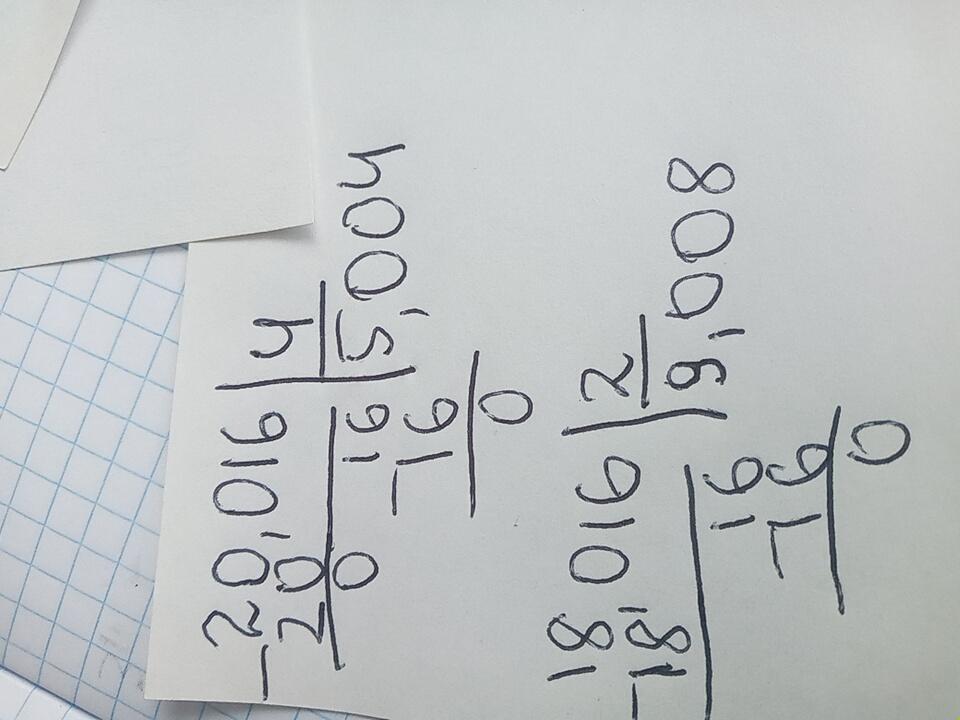 -20,016 | 4
20 | 5,004
0 16
-16
0
18,016 | 2
-18 | 9,008
16
-16
0